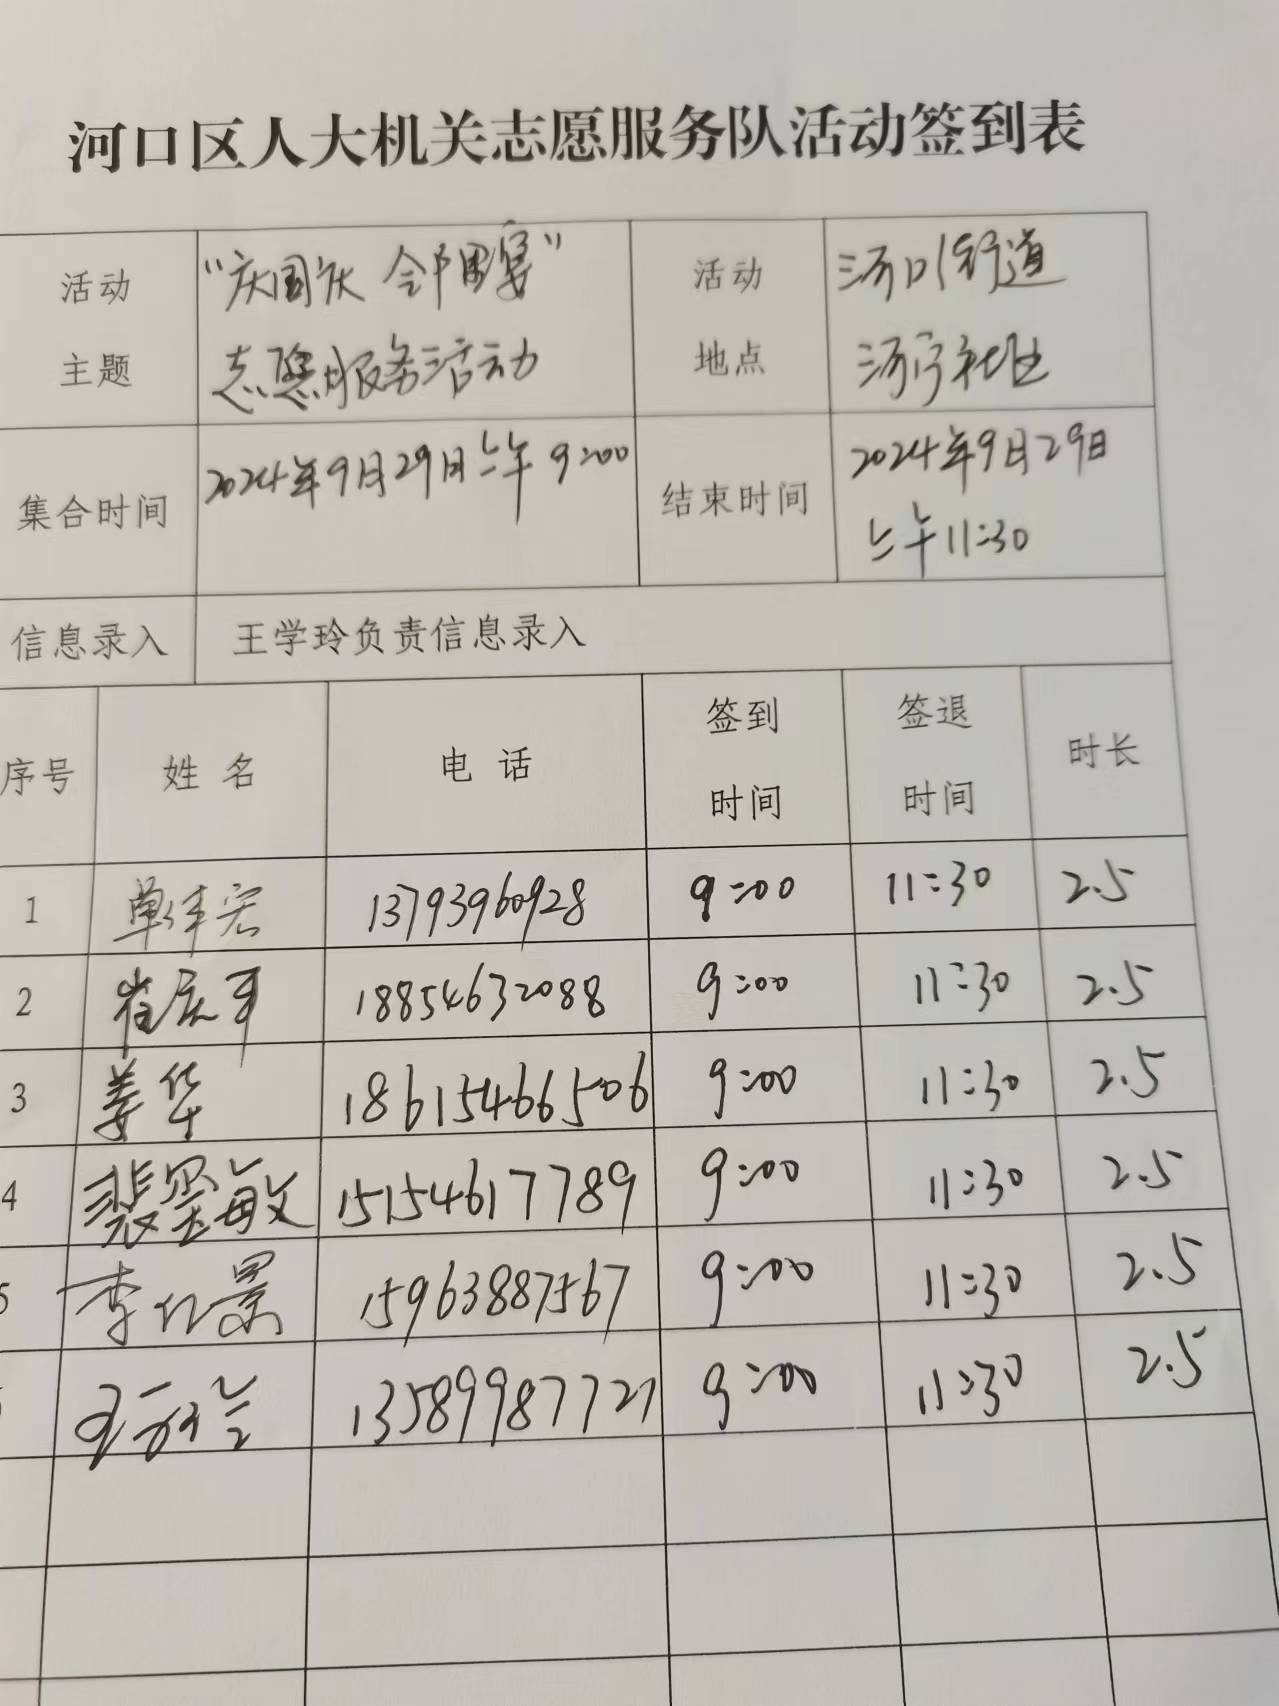 河口区人大机关志愿服务队活动签到表
活动
主题
“庆国庆 邻里宴”
志愿服务活动
活动
地点
河口街道
河宁社区
集合时间
2024年9月29日上午 9:00
结束时间
2024年9月29日
上午11:30
信息录入 王学玲负责信息录入
序号 姓名 电话 签到时间 签退时间 时长
1 单伟宏 13793960928 9:00 11:30 2.5
2 崔庆军 18854632088 9:00 11:30 2.5
3 姜华 18615466506 9:00 11:30 2.5
4 裴墨敏 15154617789 9:00 11:30 2.5
5 李仁景 15963887567 9:00 11:30 2.5
13589987721 9:00 11:30 2.5